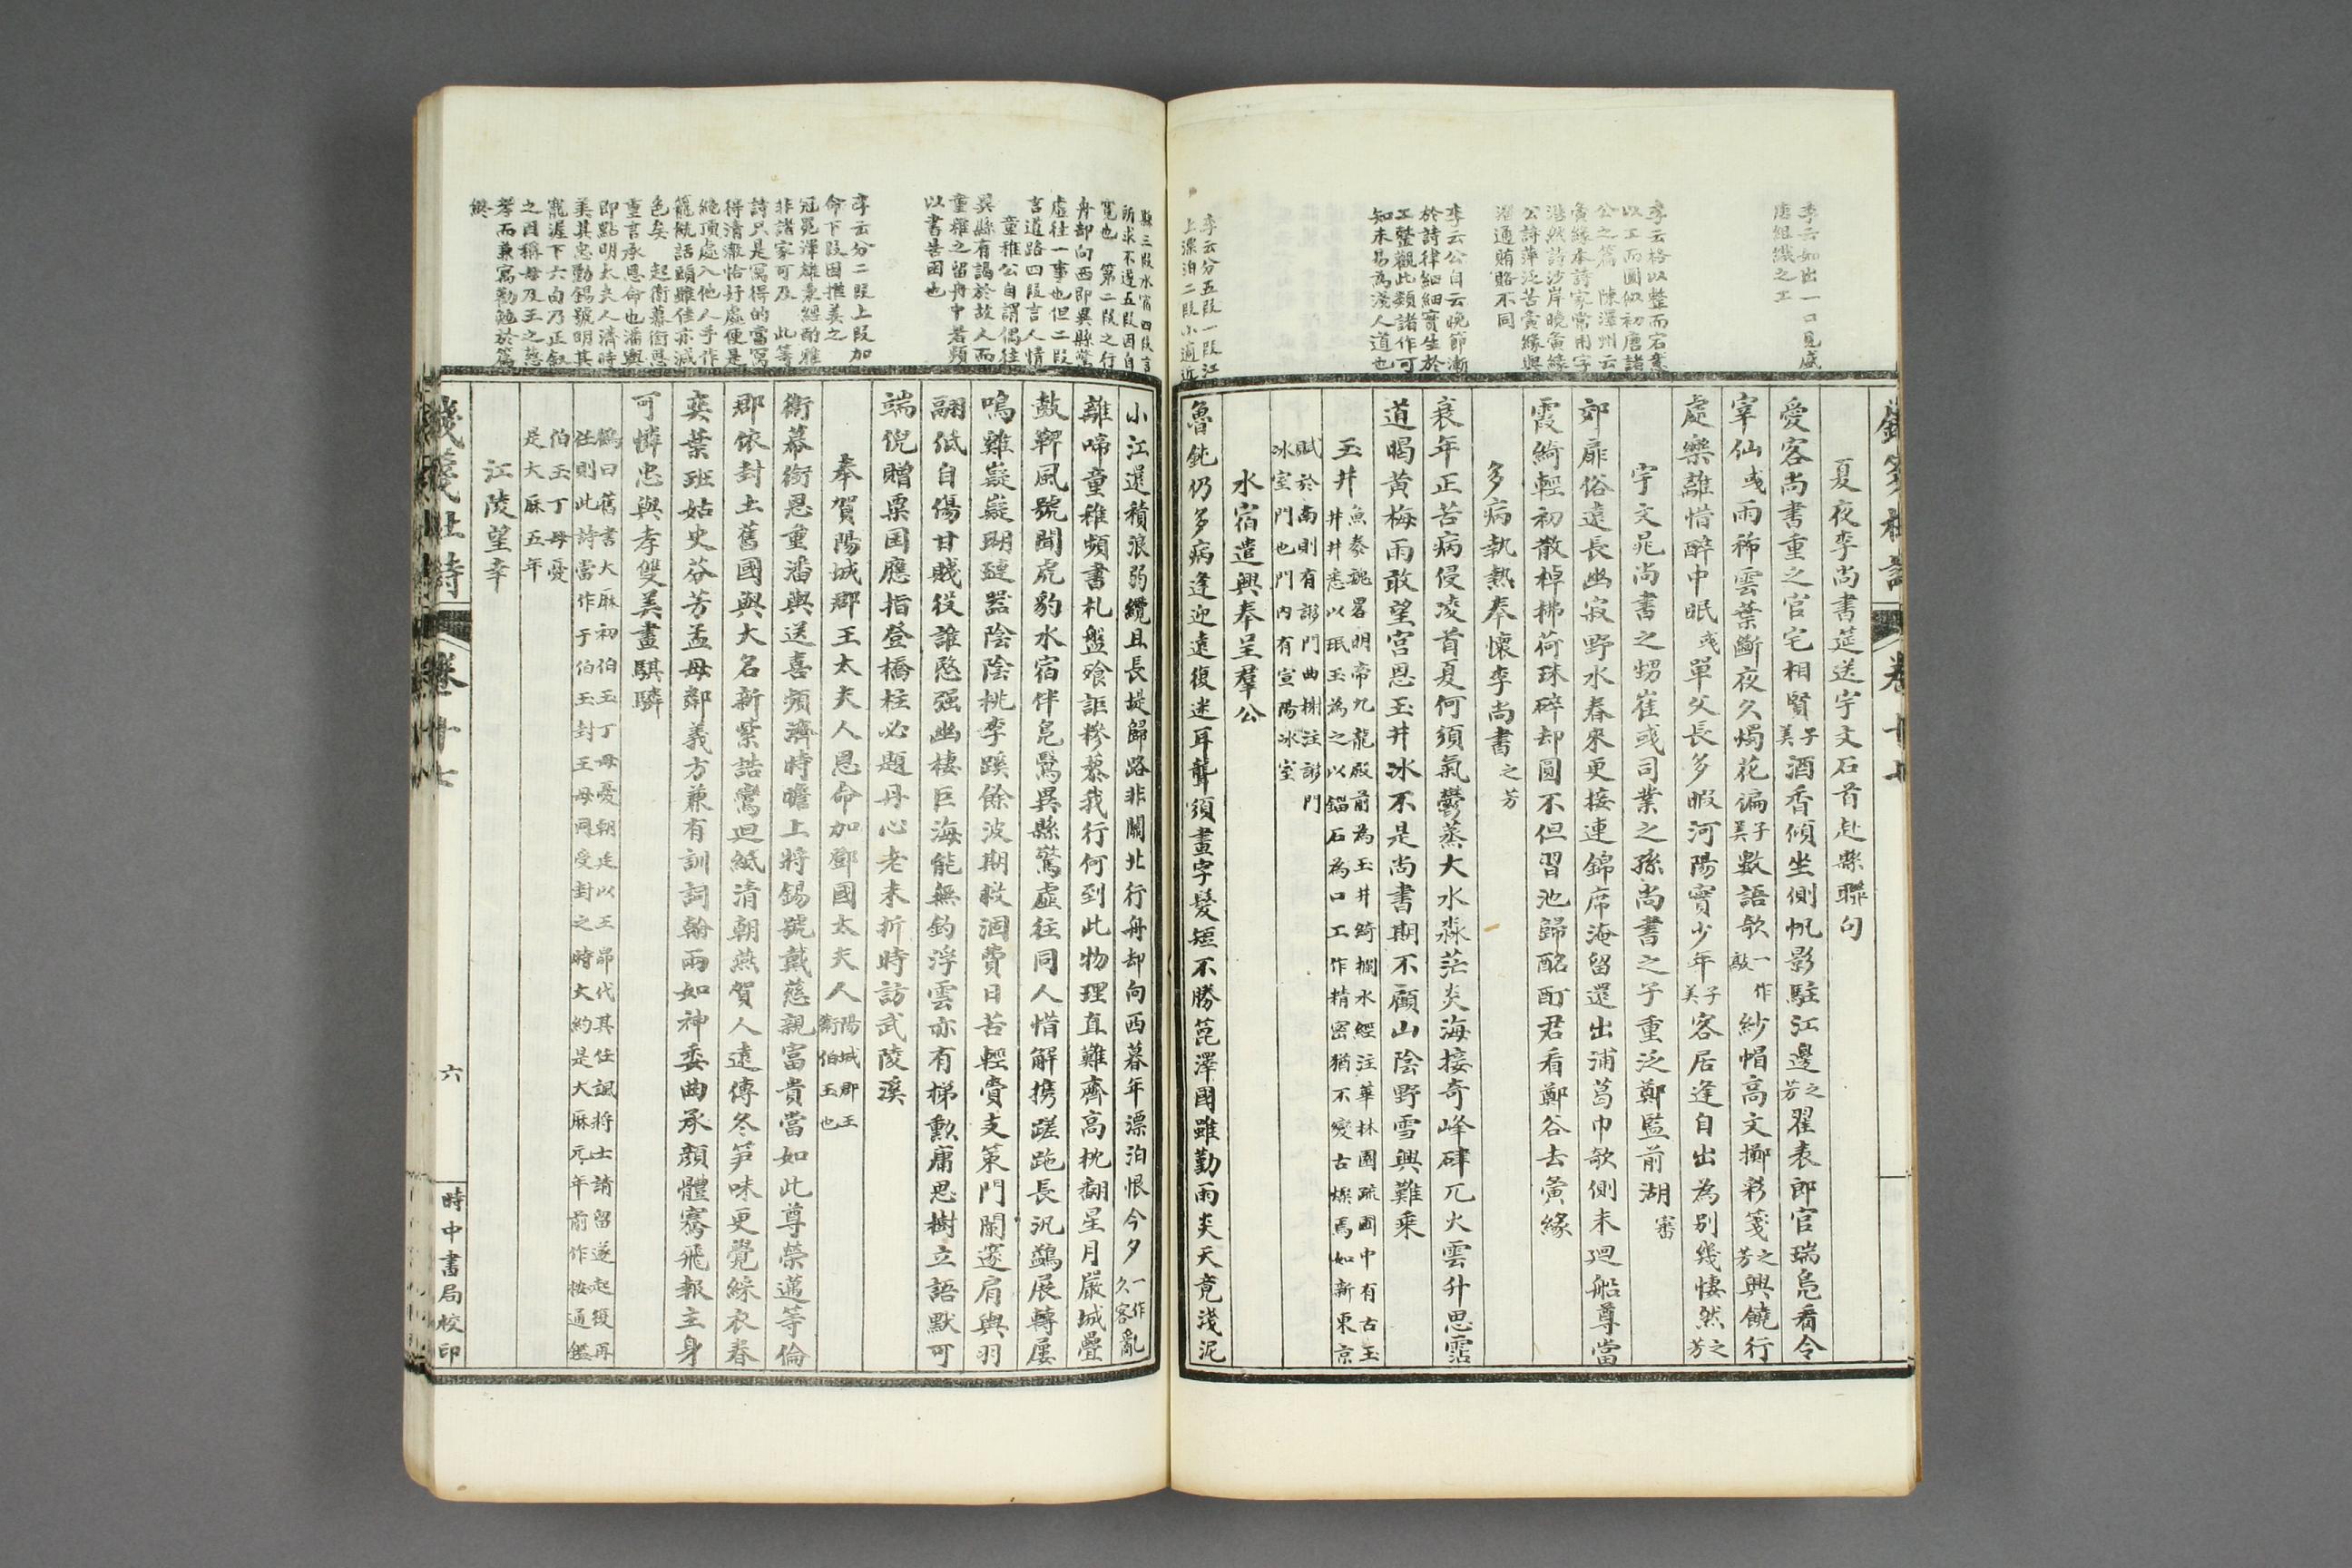 李云如出一口見盛
唐組織之工
李云格以整而宕意
以工而圓似初唐諸
公之篇 陳澤州云
夤緣本詩家常用字
浩然詩沙岸曉夤緣
公詩萍泛苦夤緣與
溷通賄賂不同
李云公自云晚節漸
於詩律細細實生於
工整觀此類諸作可
知未易為淺人道也
李云分五段一段江
上漂泊二段小適近
夏夜李尚書筵送宇文石首赴縣聯句
愛客尚書重之官宅相賢子美酒香傾坐側帆影駐江邊之芳翟表郎官瑞鳧看令
宰仙彧雨稀雲葉斷夜久燭花偏子美數語欹一作敧紗帽高文擲彩箋之芳興饒行
處樂離惜醉中眠彧單父長多暇河陽實少年子美客居逢自出為別幾悽然之芳
宇文晁尚書之甥崔彧司業之孫尚書之子重泛鄭監前湖審
郊扉俗遠長幽寂野水春來更接連錦席淹留還出浦葛巾欹側未迴船尊當
霞綺輕初散棹拂荷珠碎却圓不但習池歸酩酊君看鄭谷去夤緣
多病執熱奉懷李尚書之芳
衰年正苦病侵凌首夏何須氣鬱蒸大水淼茫炎海接奇峰硉兀火雲升思霑
道暍黃梅雨敢望宮恩玉井冰不是尚書期不顧山陰野雪興難乘
玉井魚豢魏畧明帝九龍殿前為玉井綺欄水經注華林園疏圃中有古玉
井井悉以珉玉為之以錙石為口工作精密猶不變古燦焉如新東京
賦於南則有謻門曲榭注謻門
冰室門也門內有宣陽冰室
水宿遣興奉呈羣公
魯鈍仍多病逢迎遠復迷耳聾須畫字髮短不勝箆澤國雖勤雨炎天竟淺泥
縣三段水宿四段言
所求不遇五段因自
寬也 第二段之行
舟却向西即異縣驚
虛往一事也但二段
言道路四段言人情
童稚公自謂偶往
異縣有謁於故人而
童稚之留舟中者頻
以書告困也
李云分二段上段加
命下段因推美之
冠冕渾雄秉經酌雅
非諸家可及 此等
詩只是寫得的當寫
得清澈恰好處便是
絕頂處入他人手作
籠統話頤雖佳亦減
色矣 起衛幕銜恩
重言承恩命也潘輿
即點明太夫人濟時
美其忠勤錫號明其
寵渥下六句乃正敘
之因稱母及王之慈
孝而兼寫勤勉於篇
終
小江還積浪弱纜且長堤歸路非關北行舟却向西暮年漂泊恨今夕一作久客亂
離啼童稚頻書札盤飱詎糝藜我行何到此物理直難齊高枕翻星月嚴城疊
鼓鞞風號聞虎豹水宿伴鳧鷖異縣驚虛往同人惜解携蹉跎長汎鷁展轉屢
鳴雞嶷嶷瑚璉器陰陰桃李蹊餘波期救涸費日苦輕賷支策門闌邃肩輿羽
翮低自傷甘賤役誰愍强幽棲巨海能無釣浮雲亦有梯勳庸思樹立語默可
端倪贈粟囷應指登橋柱必題丹心老未折時訪武陵溪
奉賀陽城郡王太夫人恩命加鄧國太夫人陽城郡王衛伯玉也
衛幕銜恩重潘輿送喜頻濟時瞻上將錫號戴慈親富貴當如此尊榮邁等倫
郡依封土舊國與大名新紫誥鸞迴紙清朝燕賀人遠傳冬笋味更覺綵衣春
奕葉班姑史芬芳孟母鄰義方兼有訓詞翰兩如神委曲承顏體騫飛報主身
可憐忠與孝雙美畫騏驎
鶴曰舊書大厤初伯玉丁母憂朝廷以王昂代其任諷將士請留遂起復再
任則此詩當作于伯玉封王母同受封之時大約是大厤元年前作按通鑑
伯玉丁母憂
是大厤五年
江陵望幸
錢箋杜詩
卷十七
六
時中書局校印